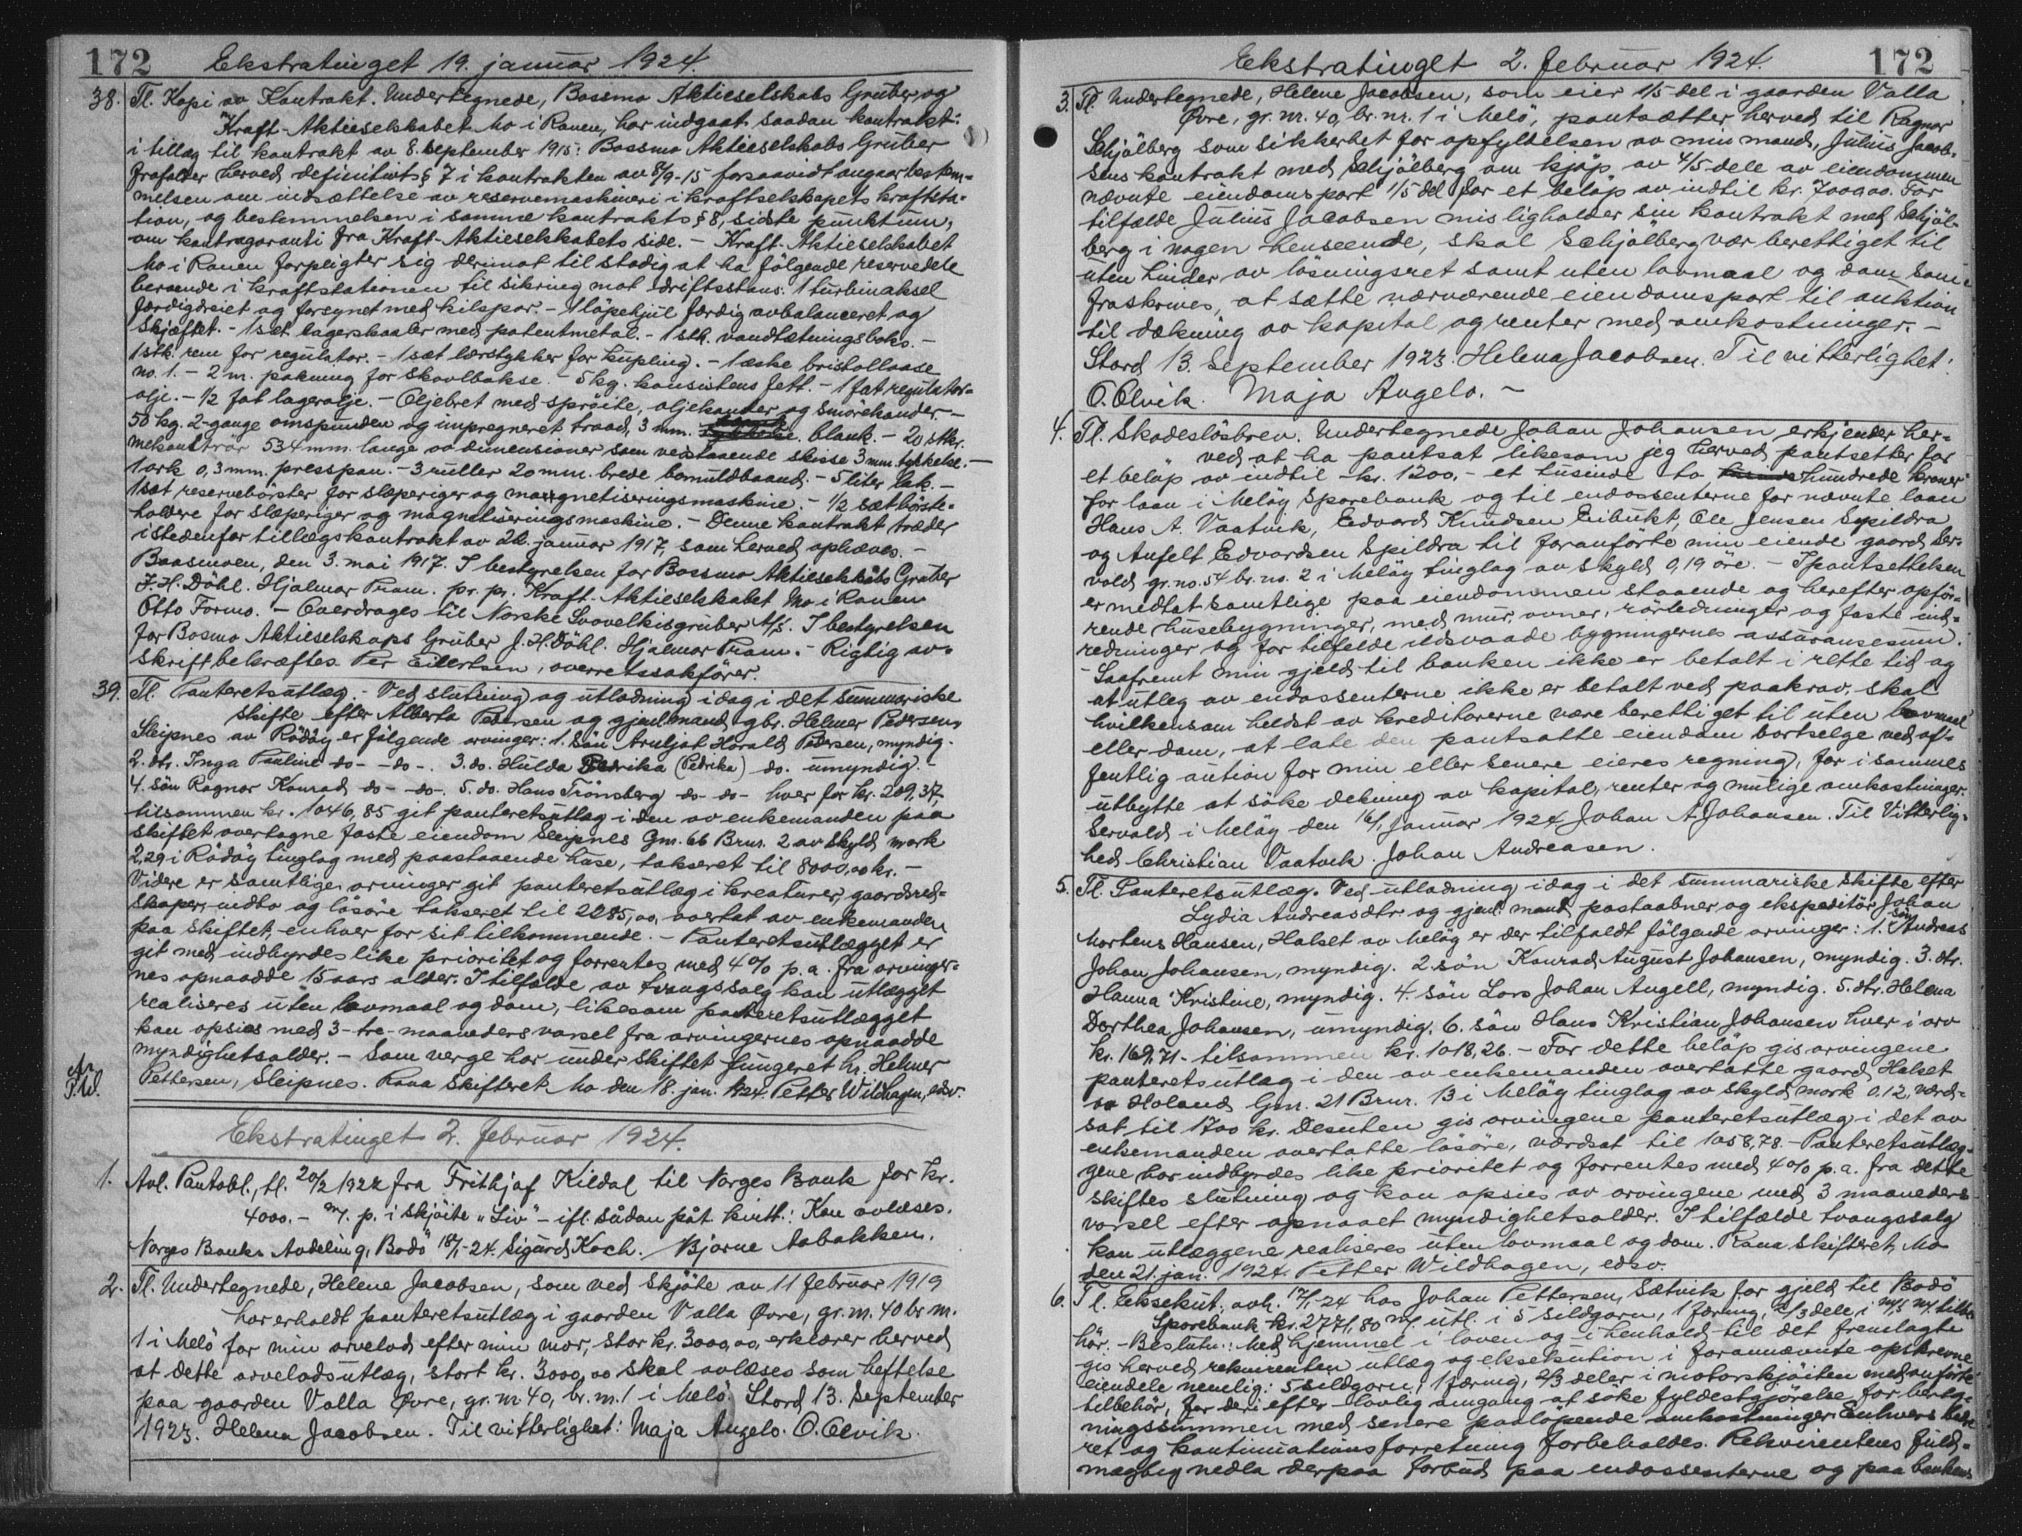 172 Ekstratinget 19. januar 1924.
38. Tl. Kopi av Kontrakt. Undertegnede, Bossmo Aktieselskabs Gruber og
Kraft-Aktieselskabet Mo i Ranen, har indgaat saadan kontrakt:
i tillæg til kontrakt av 8. september 1915: Bossmo Aktieselskabs Gruber
frafalder herved definitivt § 7 i kontrakten av 8/9-15 forsaavidt angaar bestem-
melsen om indsættelse av reservemaskineri i kraftselskapets kraftsta-
tion, og bestemmelsen i samme kontrakts § 8, sidste punktum,
om kontragaranti fra Kraft-Aktieselskabets side. - Kraft-Aktieselskabet
Mo i Ranen forpligter sig derimot til stadig at ha følgende reservedele
beroende i kraftstationen til sikring mot driftsstans: 1 turbinaksel
færdigdreiet og forsynet med kilspor. - 1 løpehjul færdig avbalanceret og
skjæftet. - 1 sæt lagerskaaler med patentmetal. - 1 stk. vandtætningsboks. -
1 stk. rem for regulator. - 1 sæt lærstykker for kupling. - 1 æske
no. 1. - 2 m. pakning for skovlbokse. - 5 kg. konsistens fett. - 1 fat regulator-
olje. - 1/2 fat lagerolje. - Oljebret med sprøite, oljekander og smørekander. -
50 kg. 2-gange omspunden og impregneret traad, 3 mm. blank. - 20 stkr.
534 mm. lange av dimensioner som vedstaaende skisse 3 mm. tykkelse. -
1 ark 0,3 mm. presspan. - 3 ruller 20 mm. brede bomuldbaand. - 5 liter lak. -
1 sæt reservebørster for slæperiger og magnetiseringsmaskine. - 1/2 sæt børste-
holdere for slæperiger og magnetiseringsmaskine. - Denne kontrakt træder
istedenfor tillægskontrakt av 22. januar 1917, som herved ophæves. -
Baasmoen, den 3. mai 1917. I bestyrelsen for Bossmo Aktieselskabs Gruber
J. H. Døhl. Hjalmar Pram. pr. pr. Kraft-Aktieselskabet Mo i Ranen
Otto Formo. - Overdrages til Norske Svovelkisgruber A/S. I bestyrelsen
for Bosmo Aktieselskaps Gruber J. H. Döhl. Hjalmar Pram. - Rigtig av-
skrift bekræftes Per Eilertsen, overretssakfører.
39. Tl. Panteretsutlæg. - Ved slutning og utlodning idag i det summariske
skifte efter Alberta Pedersen og gjenl. mand gbr. Helmer Pedersen,
Sleipnes av Rödöy er følgende arvinger: 1. søn Arnljot Harald Pedersen, myndig.
2. dtr. Inga Pauline do - - do -. 3. do. Hulda Pedrika (Pedrika) do. umyndig. -
4. søn Ragnar Konrad do - - do -. 5. do. Hans Trönsberg do - do - hver for kr. 209,37,
tilsammen kr. 1046,85 git panteretsutlæg i den av enkemanden paa
skiftet overtagne faste eiendom Sleipnes Gnr. 66 Brnr. 2 av skyld mark
2,29 i Rödöy tinglag med paastaaende huse, takseret til 8000,00 kr. -
Videre er samtlige arvinger git panteretsutlæg i kreaturer, gaardsred-
skaper, indbo og løsøre takseret til 2285,00, overtat av enkemanden
paa skiftet, enhver for sit tilkommende. - Panteretsutlægget er
git med indbyrdes like prioritet og forrentes med 4 % p.a. fra arvinger-
nes opnaadde 15 aars alder. I tilfælde av tvangssalg kan utlægget
realiseres uten lovmaal og dom, likesom panteretsutlægget
kan opsies med 3 - tre - maaneders varsel fra arvingernes opnaadde
myndighetsalder. - Som verge har under skiftet fungeret hr. Helmer
Pettersen, Sleipnes. Rana skifteret, Mo den 18. jan. 1924. Petter Wildhagen, edsv.
Ekstratinget 2. februar 1924.
1. Avl. Pantobl., tl. 20/2 1922 fra Frithjof Kildal til Norges Bank for kr.
4000.- m/. p. i skjöite "Liv" - ifl. sådan påt. kvitt.: Kan avlæses.
Norges Banks Avdeling, Bodö 18/1-24. Sigurd Koch. Bjarne Aabakken.
2. Tl. Undertegnede, Helene Jacobsen, som ved skjöte av 11 februar 1919
har erholdt panteretsutlæg i gaarden Valla Øvre, gr. nr. 40 br. nr.
1 i Melö for min arvelod efter min mor, stor kr. 3000,00, erklærer herved
at dette arvelodsutlæg, stort kr. 3000,00 skal avlæses som heftelse
paa gaarden Valla Øvre, gr. nr. 40, br. nr. 1 i Melö. Stord 13. september
1923. Helena Jacobsen. Til vitterlighet: Maja Angelo. O. Olvik.
Ekstratinget 2. februar 1924. 172
3. Tl. Undertegnede, Helene Jacobsen, som eier 1/5 del i gaarden Valla
Øvre, gr. nr. 40, br. nr. 1 i Melö, pantsætter herved til Ragnar
Schjölberg som sikkerhet for opfyldelsen av min mand, Julius Jacob-
sens kontrakt med Schjölberg om kjøp av 4/5 dele av eiendommen
nævnte eiendomspart 1/5 del for et beløp av indtil kr. 7000,00. For
tilfælde Julius Jacobsen misligholder sin kontrakt med Schjöl-
berg i nogen henseende, skal Schjölberg vær berettiget til
uten hinder av løsningsret samt uten lovmaal og dom som
fraskrives, at sætte nærværende eiendomspart til auktion
til dækning av kapital og renter med omkostninger. -
Stord 13. September 1923. Helena Jacobsen. Til vitterlighet:
O. Olvik. Maja Angelo. -
4. Tl. Skadesløsbrev. Undertegnede Johan Johansen erkjender her-
ved at ha pantsat likesom jeg herved pantsetter for
et beløp av indtil kr. 1200,- et tusinde to hundrede kroner
for laan i Meløy Sparebank og til endossenterne for nævnte laan
Hans A. Vaatvik, Edvard Knudsen Eibukt, Ole Jensen Spildra
og Anfelt Edvardsen Spildra til foranførte min eiende gaard Ser-
vold gr. no. 54 br. no. 2 i Meløy tinglag av skyld 0,19 øre. - I pantsettelsen
er medtat samtlige paa eiendommen staaende og herefter opfør-
rende husebygninger, med mur, ovner, rørledninger og faste ind-
redninger og for tilfelde ildsvaade bygningernes assuransesum.
- Saafremt min gjeld til banken ikke er betalt i rette tid og
at utleg av endossenterne ikke er betalt ved paakrav, skal
hvilkensom heldst av kreditorerne være berettiget til uten lovmaal
eller dom, at late den pantsatte eiendom bortselge ved of-
fentlig aution for min eller senere eieres regning, for i sammes
utbytte at söke dekning av kapital, renter og mulige omkostninger.
Servold i Meløy den 16/1 januar 1924 Johan A Johansen. Til Vitterlig-
hed Christian Vaatvik. Johan Andreasen.
5. Tl. Panteretsutlæg. Ved utlodning idag i det summariske skifte efter
Lydia Andreasdtr. og gjenl. mand, postaabner og ekspeditör Johan
Mortens Hansen, Halset av Meløy er der tilfaldt følgende arvinger: 1. søn Andreas
Johan Johansen, myndig. 2. søn Konrad August Johansen, myndig. 3. dtr.
Hanna Kristine, myndig. 4. søn Lars Johan Angell, myndig. 5. dtr. Helena
Dorthea Johansen, umyndig. 6. søn Hans Kristian Johansen hver i arv
kr. 169,71.- tilsammen kr. 1018,26. - For dette beløp gis arvingene
panteretsutlæg i den av enkemanden overtatte gaard Halset
av Holand Gnr. 21 Brnr. 13 i Meløy tinglag av skyld mark 0.12, værd-
sat til 1700 kr. Desuten gis arvingene panteretsutlæg i det av
enkemanden overtatte løsøre, værdsat til 1058,78. - Panteretsutlæg-
gene har indbyrdes like prioritet og forrentes med 4 % p.a. fra dette
skiftes slutning og kan opsies av arvingene med 3 maaneders
varsel efter opnaaet myndighetsalder. I tilfælde tvangssalg
kan utlæggene realiseres uten lovmaal og dom. Rana skifteret, Mo
den 21. jan. 1924. Petter Wildhagen, edsv.
6. Tl. Eksekut. avh. 17/1-24 hos Johan Pettersen, Sætvik for gjeld til Bodö
Sparebank kr. 2771,80 m/ utl. i 5 sildgarn, 1 færing, 2/3 dele i m/k m/. tilbe-
hör. - Beslutn.: Med hjemmel i loven og i henhold til det fremlagte
gis herved rekvirenten utlæg og eksekution i forannævnte opskrevne
eiendele nemlig: 5 sildgarn, 1 færing, 2/3 deler i motorskjöiten med anført
tilbehör, for deri efter lovlig omgang at söke fyldestgjörelse for bereg-
ningssummen med senere paaløpende omkostninger. Enhvers bedre
ret og kontinuationsforretning forbeholdes. Rekvirentens fuld-
mægtig nedla derpaa forbud paa endossenterne og paa bankens